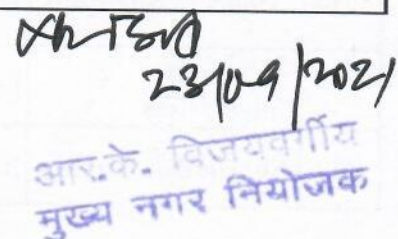 23/09/2021
आर.के. विजयवर्गीय
मुख्य नगर नियोजक